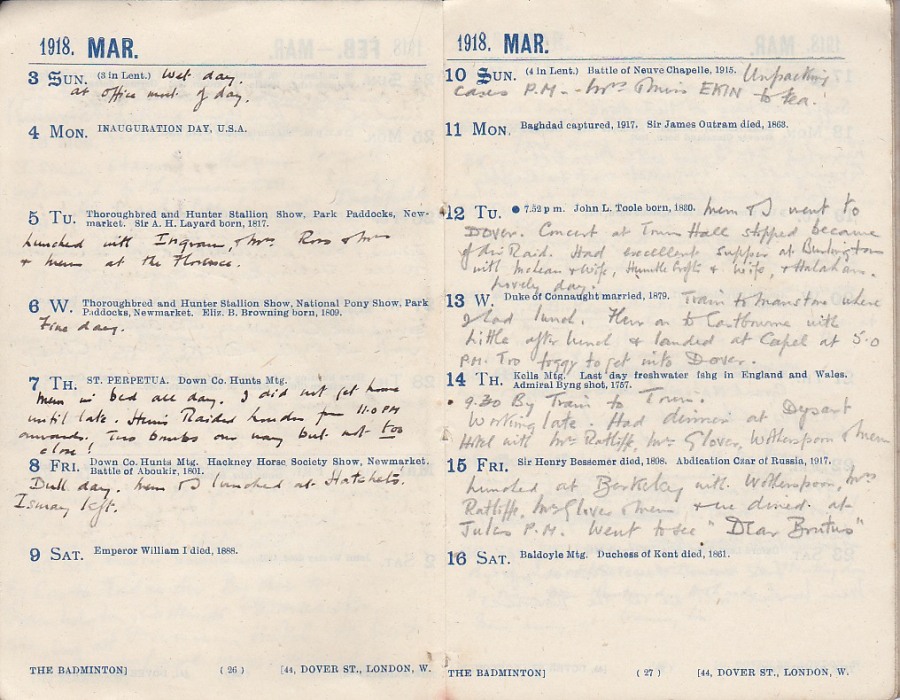 1918. MAR.
3 SUN. (3 in Lent.) Wet day.
at office most of day.
4 MON. INAUGURATION DAY, U.S.A.
5 TU. Thoroughbred and Hunter Stallion Show, Park Paddocks, New-
market. Sir A. H. Layard born, 1817.
Lunched with Ingram, & Mrs. Ross & Mrs
& Mem at the Florence.
6 W. Thoroughbred and Hunter Stallion Show, National Pony Show, Park
Paddocks, Newmarket. Eliz. B. Browning born, 1809.
Fine day.
7 TH. ST. PERPETUA. Down Co. Hunts Mtg.
Mem in bed all day. I did not get home
until late. Huns Raided London from 11.0 PM
onwards. Two bombs our way but not too
close!
8 FRI. Down Co. Hunts Mtg. Hackney Horse Society Show, Newmarket.
Battle of Aboukir, 1801.
Dull day. Mem & I lunched at Hatchets.
Ismay left.
9 SAT. Emperor William I died, 1888.
THE BADMINTON] ( 26 ) [44, DOVER ST., LONDON, W.
1918. MAR.
10 SUN. (4 in Lent.) Battle of Neuve Chapelle, 1915. Unpacking
cases P.M. - Mrs EKIN to tea.
11 MON. Baghdad captured, 1917. Sir James Outram died, 1863.
12 TU. ● 7.52 p m. John L. Toole born, 1830. Mem & I went to
DOVER. Concert at Town Hall stopped because
of Air Raid. Had excellent supper at Burlington
with McLean & Wife, & Wife, & Halahan.
Lovely day.
13 W. Duke of Connaught married, 1879. Train to Manston where
I had lunch. Flew on to Eastbourne with
Little after lunch & landed at Capel at 5.0
P.M. Too foggy to get into Dover.
14 TH. Kells Mtg. Last day freshwater fshg in England and Wales.
Admiral Byng shot, 1757.
9.30 By Train to Town.
Working late. Had dinner at Dysart
Hotel with Mrs Ratliff, Mrs Glover, Wotherspoon & Mem
15 FRI. Sir Henry Bessemer died, 1898. Abdication Czar of Russia, 1917.
Lunched at Berkeley with Wotherspoon, Mrs
Ratliff, Mrs Glover & Mem & we dined at
Jules P.M. Went to see "Dear Brutus"
16 SAT. Baldoyle Mtg. Duchess of Kent died, 1861.
THE BADMINTON] ( 27 ) [44, DOVER ST., LONDON, W.